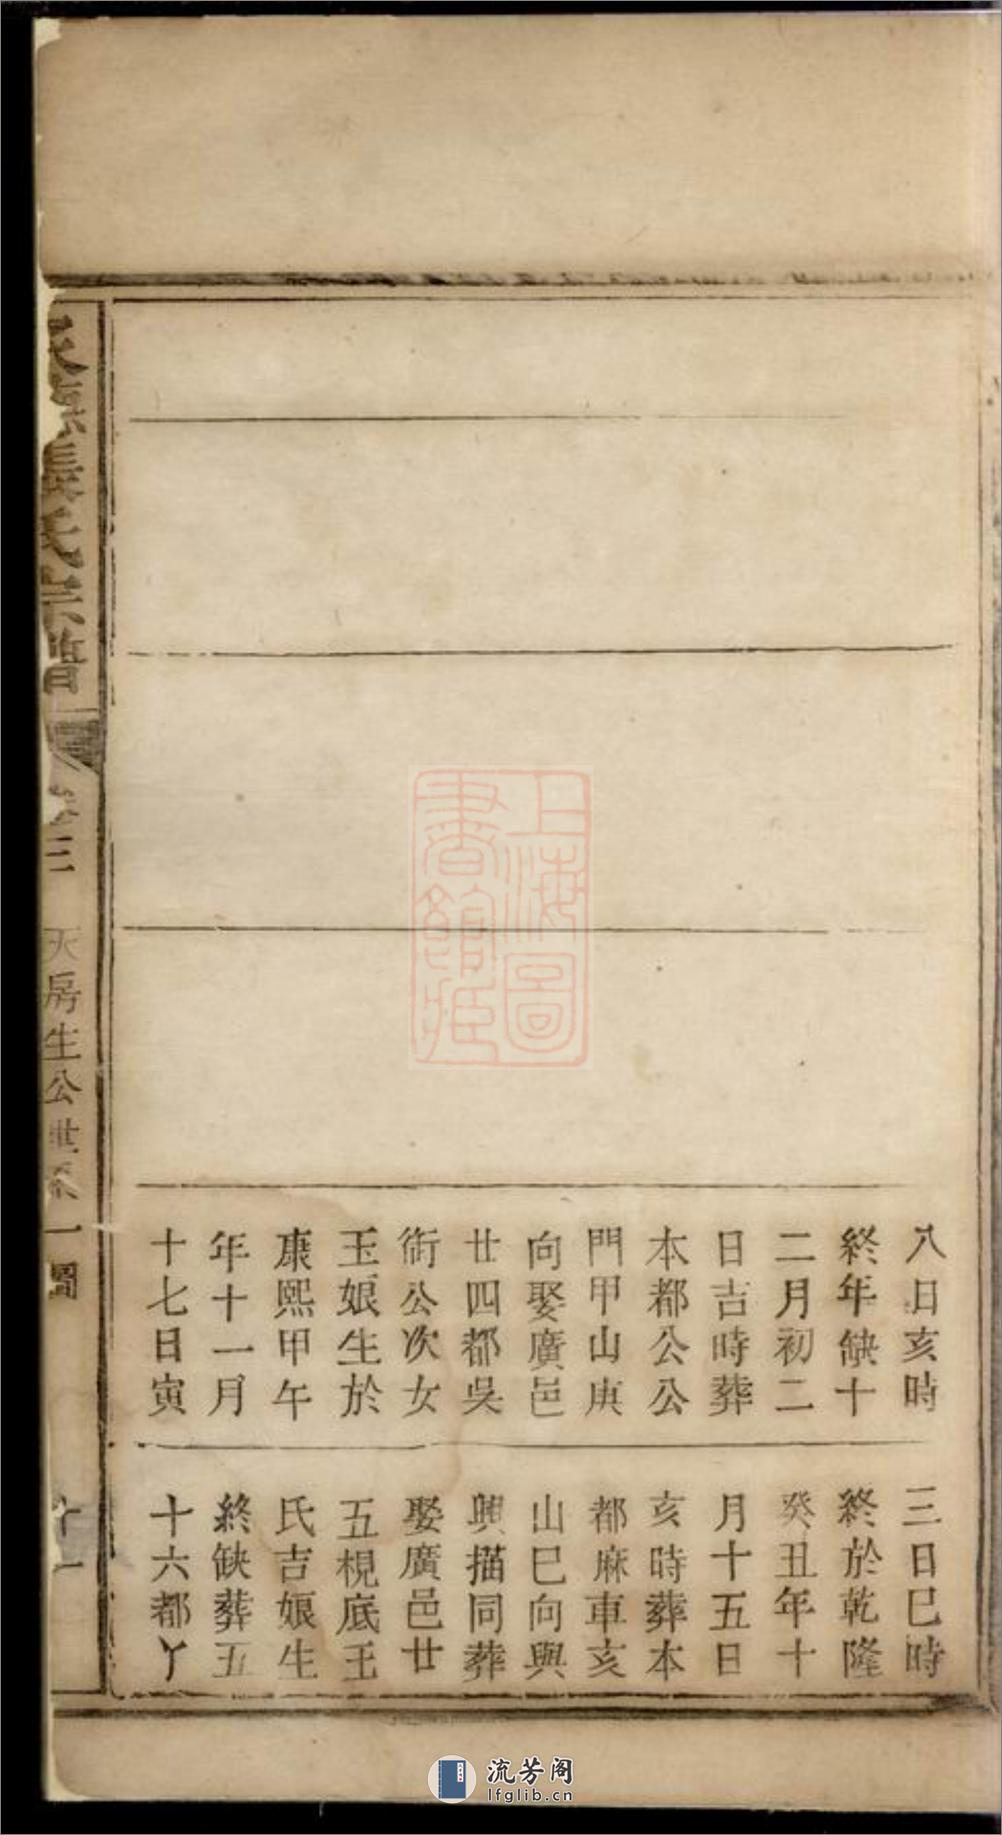 八日亥時
終年缺十
二月初二
日吉時葬
本都公公
門甲山庚
向娶廣邑
廿四都吳
衙公次女
玉娘生於
康熙甲午
年十一月
十七日寅
三日巳時
終於乾隆
癸丑年十
月十五日
亥時葬本
都麻車亥
山巳向與
興描同葬
娶廣邑廿
五梘底王
氏吉娘生
終缺葬五
十六都丫
姜氏宗譜
卷三
天房生公世系一圖
十一
上海圖
書館藏
流芳阁
lfglib.cn